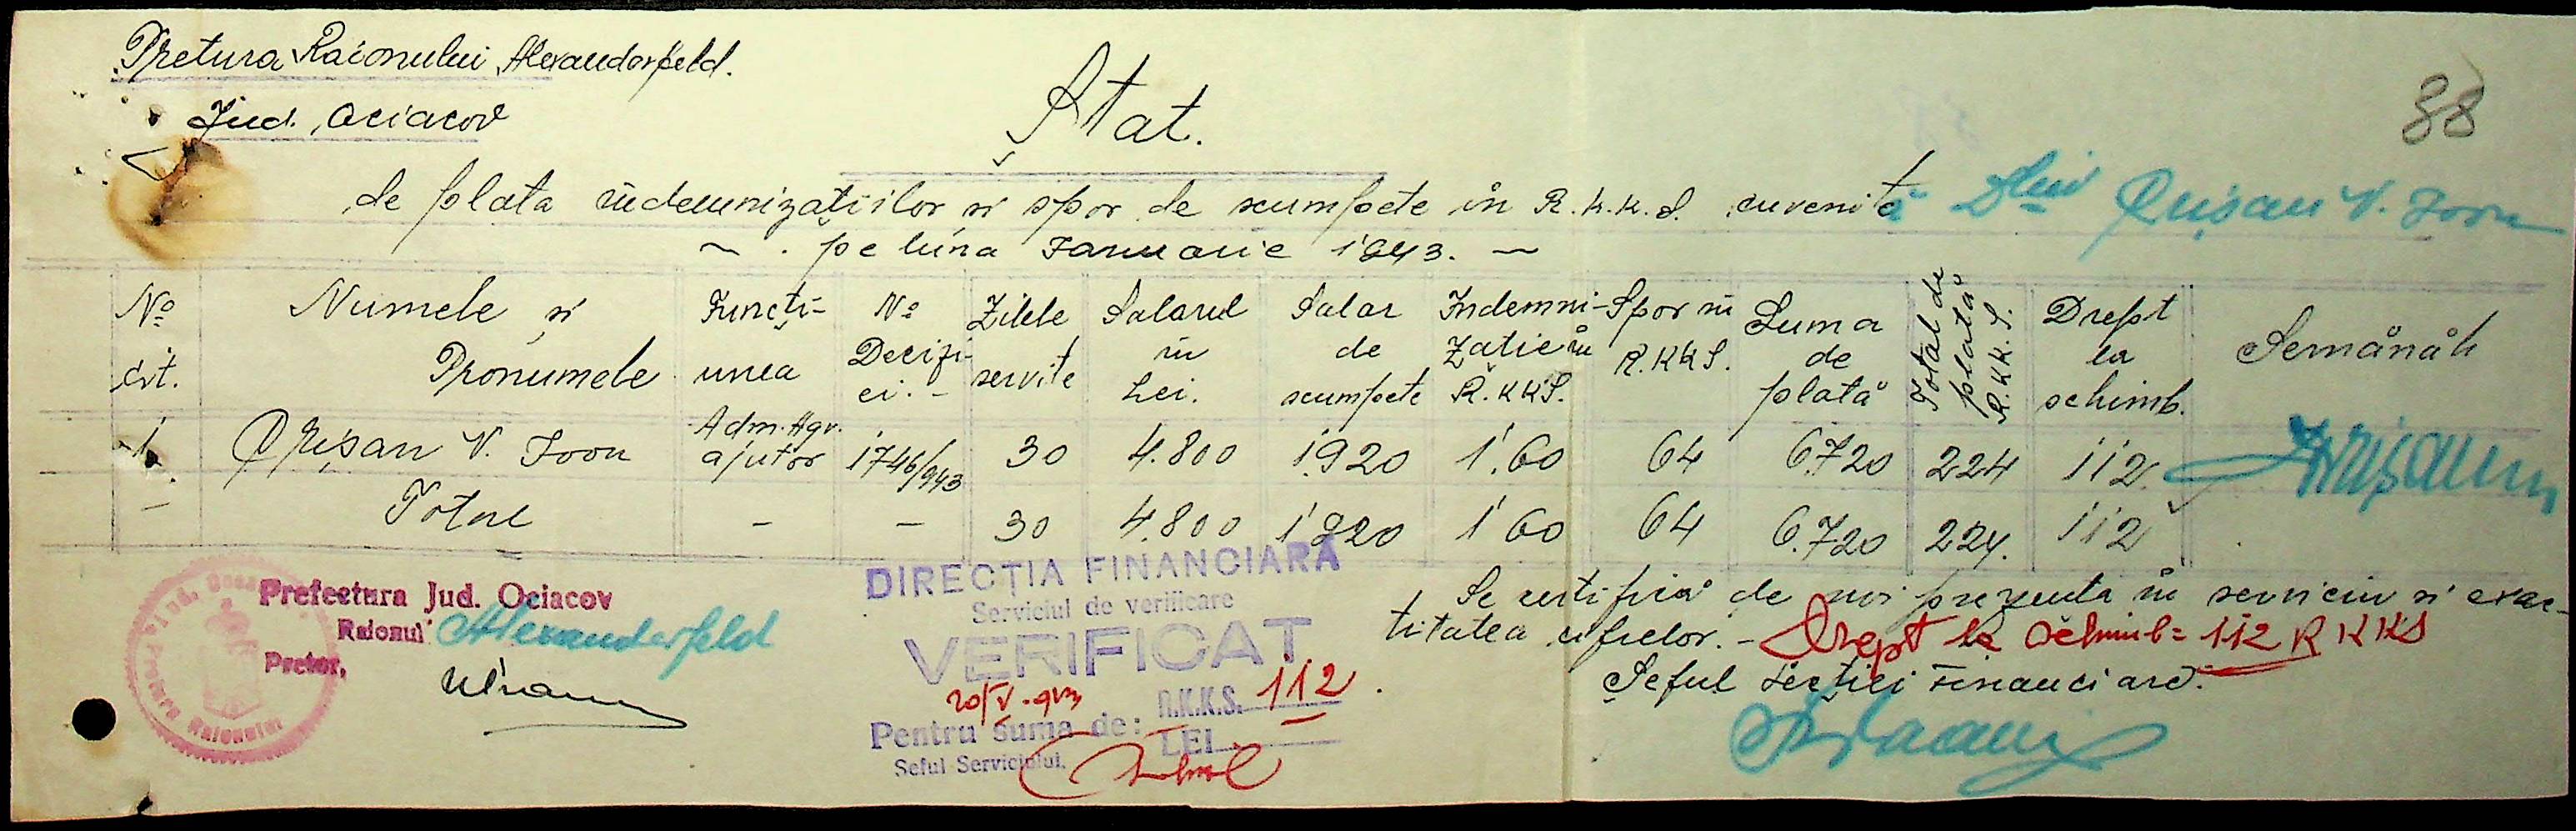 Pretura Raionului Alexanderfeld.
Jud. Ociacov
88
Ștat.
de plata indemnizațiilor si spor de scumpete in R.K.K.S. cuvenite Dlui Crișan V. Ioan
~ . pe luna Ianuarie 1943. ~
No crt. Numele si Pronumele Funcți-unea No Decizi-ei. - Zilele servite Salarul in Lei. Salar de scumpete Indemni-zatie in R.KKS. Spor in R.KKS. Suma de plată Total de plată R.KK.S. Drept la schimb. Semănăt.
1. Crișan V. Ioan Adm. Agr. ajutor 1746/943 30 4.800 1920 160 64 6.720 224 112 Crișan
- Total - - 30 4.800 1920 160 64 6.720 224. 112
Prefectura Jud. Ociacov
Raionul Alexanderfeld
Pretor,
DIRECȚIA FINANCIARĂ
Serviciul de verificare
VERIFICAT
20/V.943
Pentru suma de: R.K.K.S. 112
LEI
Seful Serviciului.
Se certifică de noi prezenta in serviciu si exac-
titatea cifrelor. - Drept la schimb = 112 R KKS
Șeful secției Financiare.